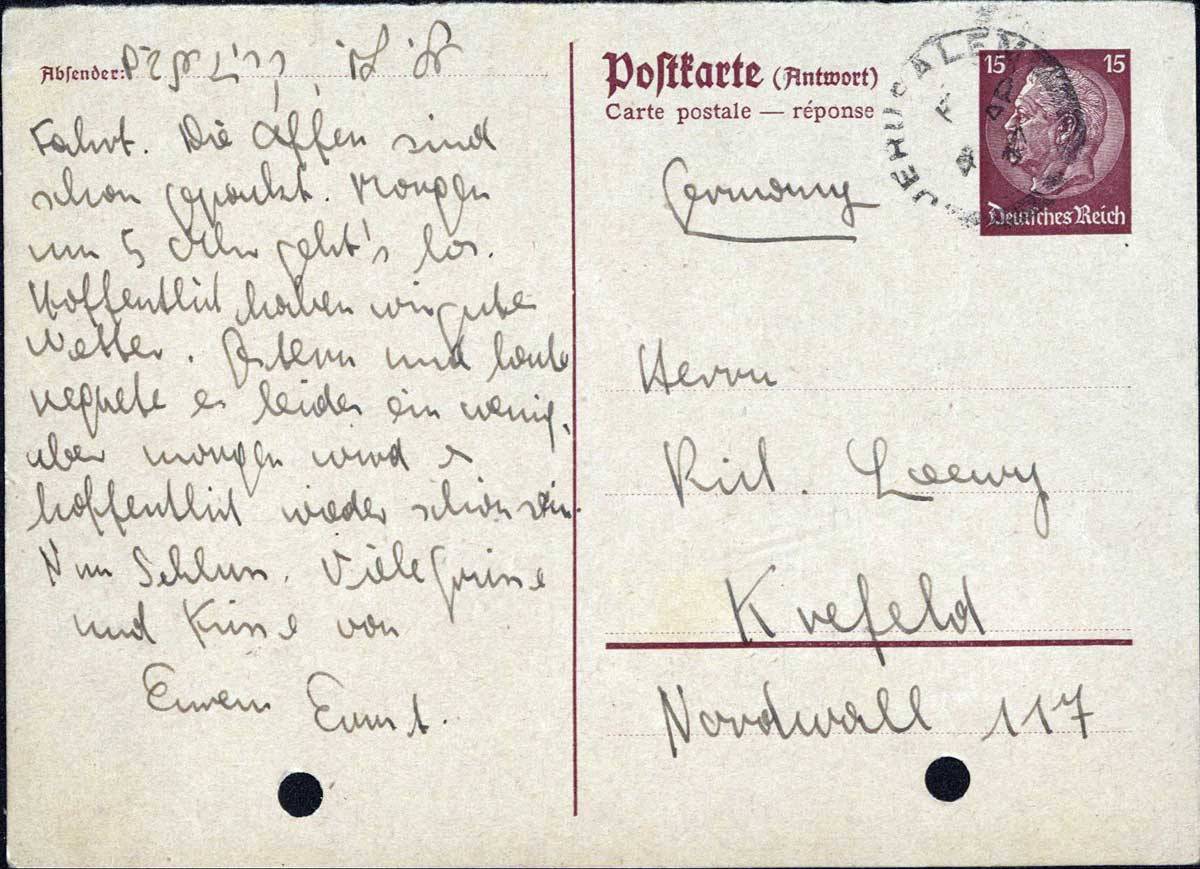 Absender:
Fahrt. Die Affen sind
schon gepackt. Morgen
um 5 Uhr geht's los.
Hoffentlich haben wir gutes
Wetter. Gestern und heute
regnete es leider ein wenig,
aber morgen wird es
hoffentlich wieder schön sein.
Nun Schluss. Viele Grüsse
und Küsse von
Eurem Ernst.
Postkarte (Antwort)
Carte postale — réponse
JERUSALEM
15 15
Deutsches Reich
Germany
Herrn
Rich. Loewy
Krefeld
Nordwall 117